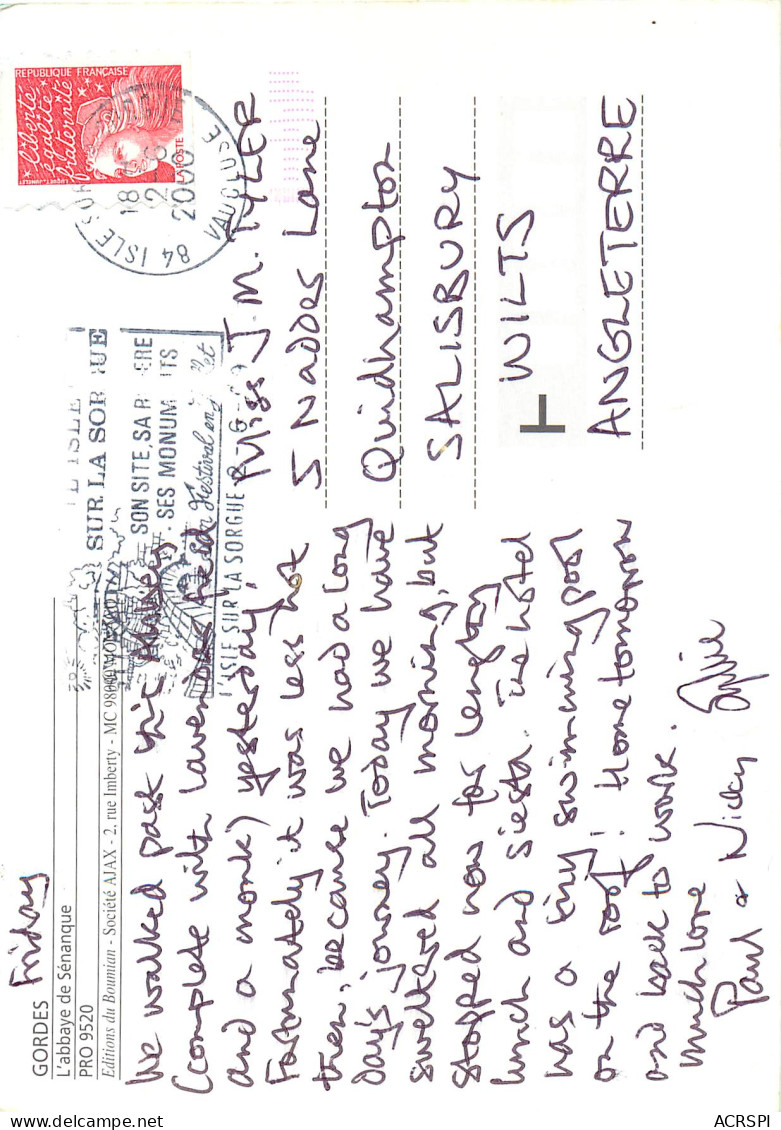 GORDES
L'abbaye de Sénanque
PRO 9520
Editions du Boumian - Société AJAX - 2, rue Imberty - MC 98000
Friday
We walked past this
(complete with lavender field
and a monk) yesterday.
Fortunately it was less hot
then, because we had a long
day's journey. Today we have
sweltered all morning, but
stopped now for lengthy
lunch and siesta. The hotel
has a tiny swimming pool
on the roof! Home tomorrow
and back to work.
Much love
Paul & Nicky
REPUBLIQUE FRANÇAISE
liberté
égalité
fraternité
LA POSTE
84 ISLE SUR
VAUCLUSE
18
2000
L'ISLE
SUR LA SORGUE
SON SITE, SA RIVIERE
SES MONUMENTS
Son Festival en Juillet
L'ISLE SUR LA SORGUE
Miss J.M. TYLER
5 Nadder Lane
Quidhampton
SALISBURY
WILTS
ANGLETERRE
ACRSPI